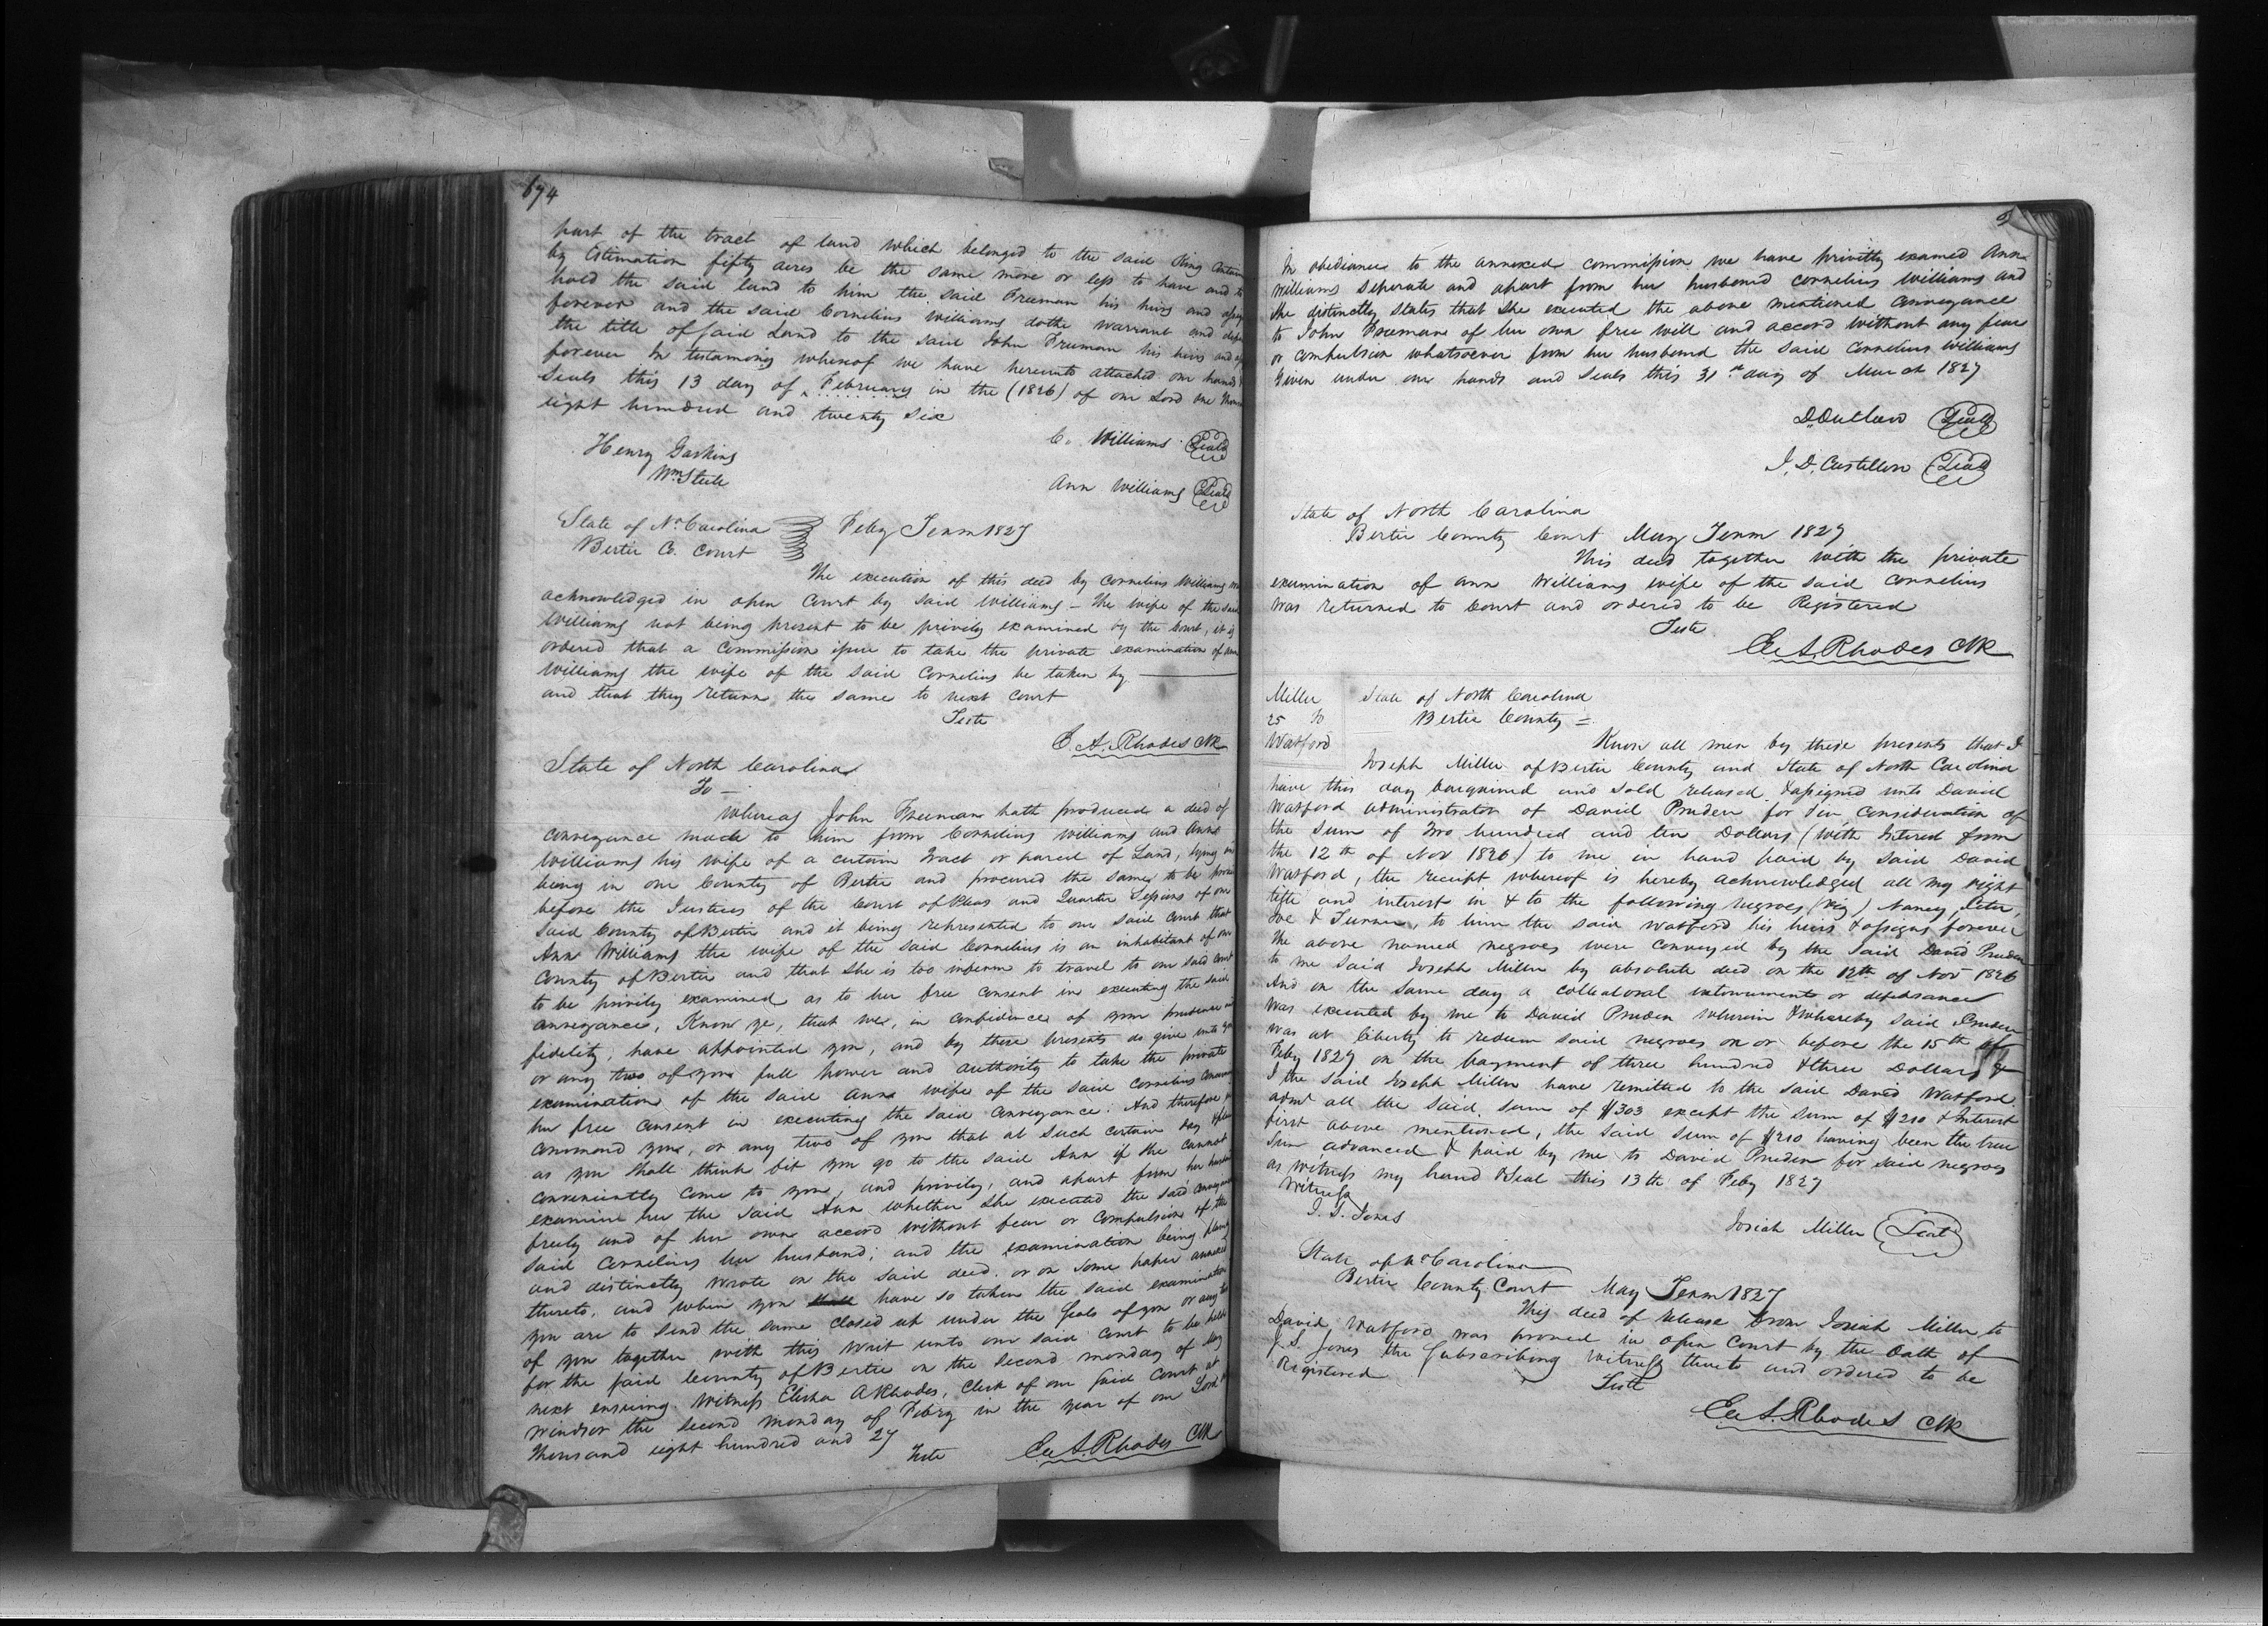 674
part of the tract of land which belonged to the said King
by Estimation fifty acres be the same more or less to have and to
hold the said land to him the said Freeman his heirs and
forever and the said Cornelius Williams dothe warrant and
the title of said Land to the said John Freeman his heirs and
forever In testamony whereof we have hereunto attached our hands
Seals this 13 day of February in the (1826) of our Lord one
eight hundred and twenty six
C. Williams Seal
Henry Gaskins
Wm Steele
Ann Williams Seal
State of No Carolina
Bertie Co. Court
Feby Term 1827
The execution of this deed by Cornelius Williams
acknowledged in open Court by said Williams - the wife of the said
Williams not being present to be privily examined by the Court, it is
ordered that a Commission issue to take the private examination of Ann
Williams the wife of the said Cornelius be taken by
and that they return the same to next Court
Teste
E. A. Rhodes Clk
State of North Carolina
To -
Whereas John Freeman hath produced a deed of
conveyance made to him from Cornelius Williams and Ann
Williams his wife of a certain tract or parcel of Land, lying and
being in our County of Bertie and procured the same to be
before the Justices of the Court of Pleas and Quarter Sessions of our
said County of Bertie and it being represented to our said Court that
Ann Williams the wife of the said Cornelius is an inhabitant of our
County of Bertie and that she is too infirm to travel to our said Court
to be privily examined as to her free consent in executing the said
conveyance, Know ye, that we, in confidence of your prudence and
fidelity, have appointed you, and by these presents do give unto you
or any two of you full power and authority to take the private
examination of the said Ann wife of the said Cornelius
her free consent in executing the said conveyance: And therefore
command you, or any two of you that at such certain day & place
as you shall think fit you go to the said Ann if she cannot
conveniently come to you, and privily, and apart from her husband
examine her the said Ann whether she executed the said conveyance
freely and of her own accord without fear or compulsion of the
said Cornelius her husband; and the examination being
and distinctly wrote on the said deed or on some paper annexed
thereto, and when you shall have so taken the said examination
you are to send the same closed up under the Seals of you or any two
of you together with this writ unto our said Court to be held
for the said County of Bertie on the second monday of May
next ensuing. Witness Elisha A Rhodes, Clerk of our said Court at
Windsor the second monday of Feby in the year of our Lord
thousand eight hundred and 27
Teste
E A. Rhodes Clk
In obediance to the annexed commission we have privitly examed Ann
Williams seperate and apart from her husband Cornelius Williams and
she distinctly states that she executed the above mentioned conveyance
to John Freeman of her own free will and accord without any fear
or compulsion whatsoever from her husband the said Cornelius Williams
Given under our hands and seals this 31st day of March 1827
D. Outlaw Seal
J. D. Castellow Seal
State of North Carolina
Bertie County Court May Term 1827
This deed together with the private
examination of Ann Williams wife of the said Cornelius
was returned to Court and ordered to be Registered
Teste
E A. Rhodes Clk
Miller
25 to
Watford
State of North Carolina
Bertie County =
Know all men by these presents that I
Joseph Miller of Bertie County and State of North Carolina
have this day bargained and sold released & assigned unto David
Watford administrator of David Pruden for & in Consideration of
the sum of two hundred and ten Dollars (with Interest from
the 12th of Nov 1826) to me in hand paid by said David
Watford, the receipt whereof is hereby acknowledged all my right
title and interest in & to the following negroes (viz) Nancy, Peter,
Joe & to him the said Watford his heirs & assigns forever
The above named negroes were conveyed by the said David Pruden
to me said Joseph Miller by absolute deed on the 12th of Nov 1826
And on the same day a collatoral or
was executed by me to David Pruden wherein & whereby said Pruden
was at liberty to redeem said negroes on or before the 15th of
Feby 1827 on the payment of three hundred & three Dollars &
I the said Joseph Miller have remitted to the said David Watford
admr all the said sum of $303 except the sum of $210 & Interest
first above mentioned, the said sum of $210 having been the true
sum advanced & paid by me to David Pruden for said negroes
as witness my hand & Seal this 13th of Feby 1827
Witness
J. S. Jones
Josiah Miller Seal
State of No Carolina
Bertie County Court May Term 1827
This deed of release from Josiah Miller to
David Watford was proved in open Court by the Oath of
J. S. Jones the Subscribing witness thereto and ordered to be
Registered
Teste
E A. Rhodes Clk